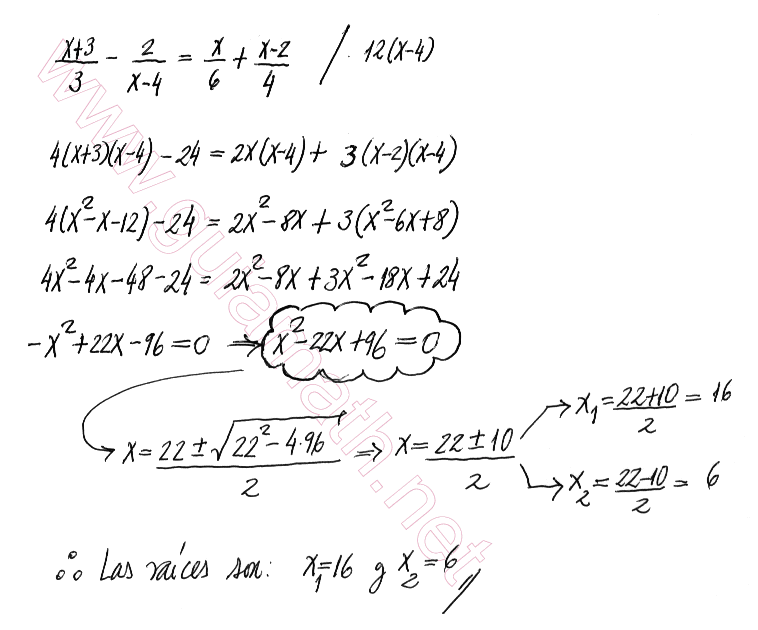 (x+3)/3 − 2/(x−4) = x/6 + (x−2)/4 / · 12(x−4)
4(x+3)(x−4) − 24 = 2x(x−4) + 3(x−2)(x−4)
4(x²−x−12) − 24 = 2x² − 8x + 3(x²−6x+8)
4x² − 4x − 48 − 24 = 2x² − 8x + 3x² − 18x + 24
−x² + 22x − 96 = 0 ⇒ x² − 22x + 96 = 0
x = (22 ± √(22² − 4·96))/2 ⇒ x = (22 ± 10)/2
x₁ = (22+10)/2 = 16
x₂ = (22−10)/2 = 6
∴ Las raíces son: x₁=16 y x₂=6 //
www.guiamath.net